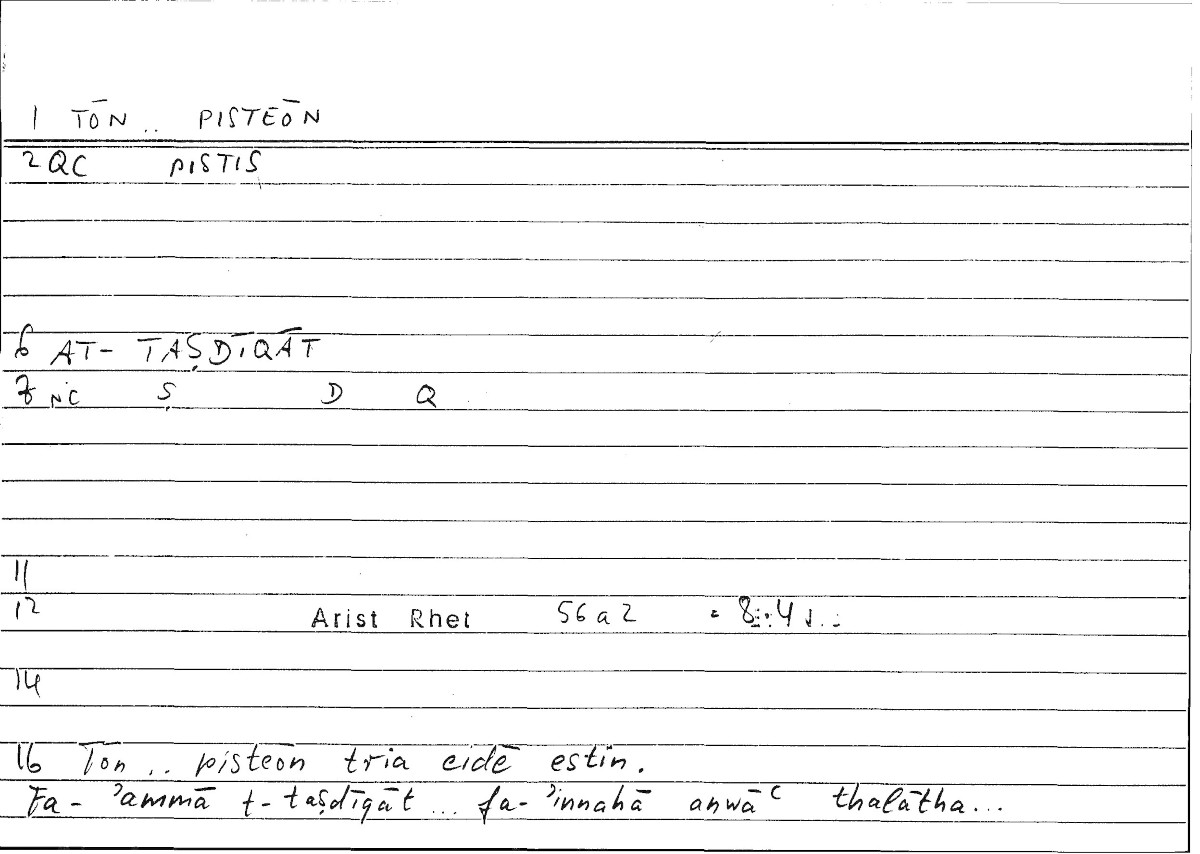 1 TŌN .. PISTEŌN
2 QC PISTIS
6 AT- TAṢDĪQĀT
7 NC Ṣ D Q
11
12 Arist Rhet 56a2 = 8:4
14
16 Tōn .. pisteōn tria eidē estin.
Fa- ʾammā t-taṣdīqāt ... fa- ʾinnahā anwāʿ thalātha...